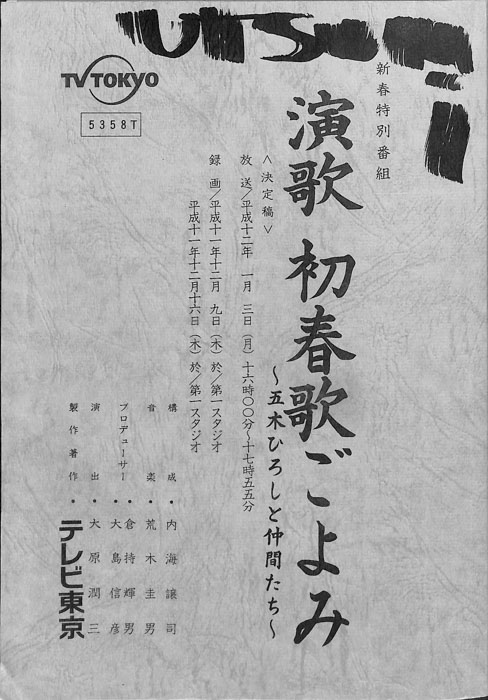 新春特別番組
演歌 初春歌ごよみ
〜五木ひろしと仲間たち〜
<決定稿>
放送/平成十二年 一月 三日(月)十六時〇〇分〜十七時五五分
録画/平成十一年十二月 九日(木)於/第一スタジオ
平成十一年十二月十六日(木)於/第一スタジオ
TV TOKYO
5358T
構成・内海譲司
音楽・荒木圭男
プロデューサー・倉持輝男
・大島信彦
演出・大原潤三
製作著作・テレビ東京